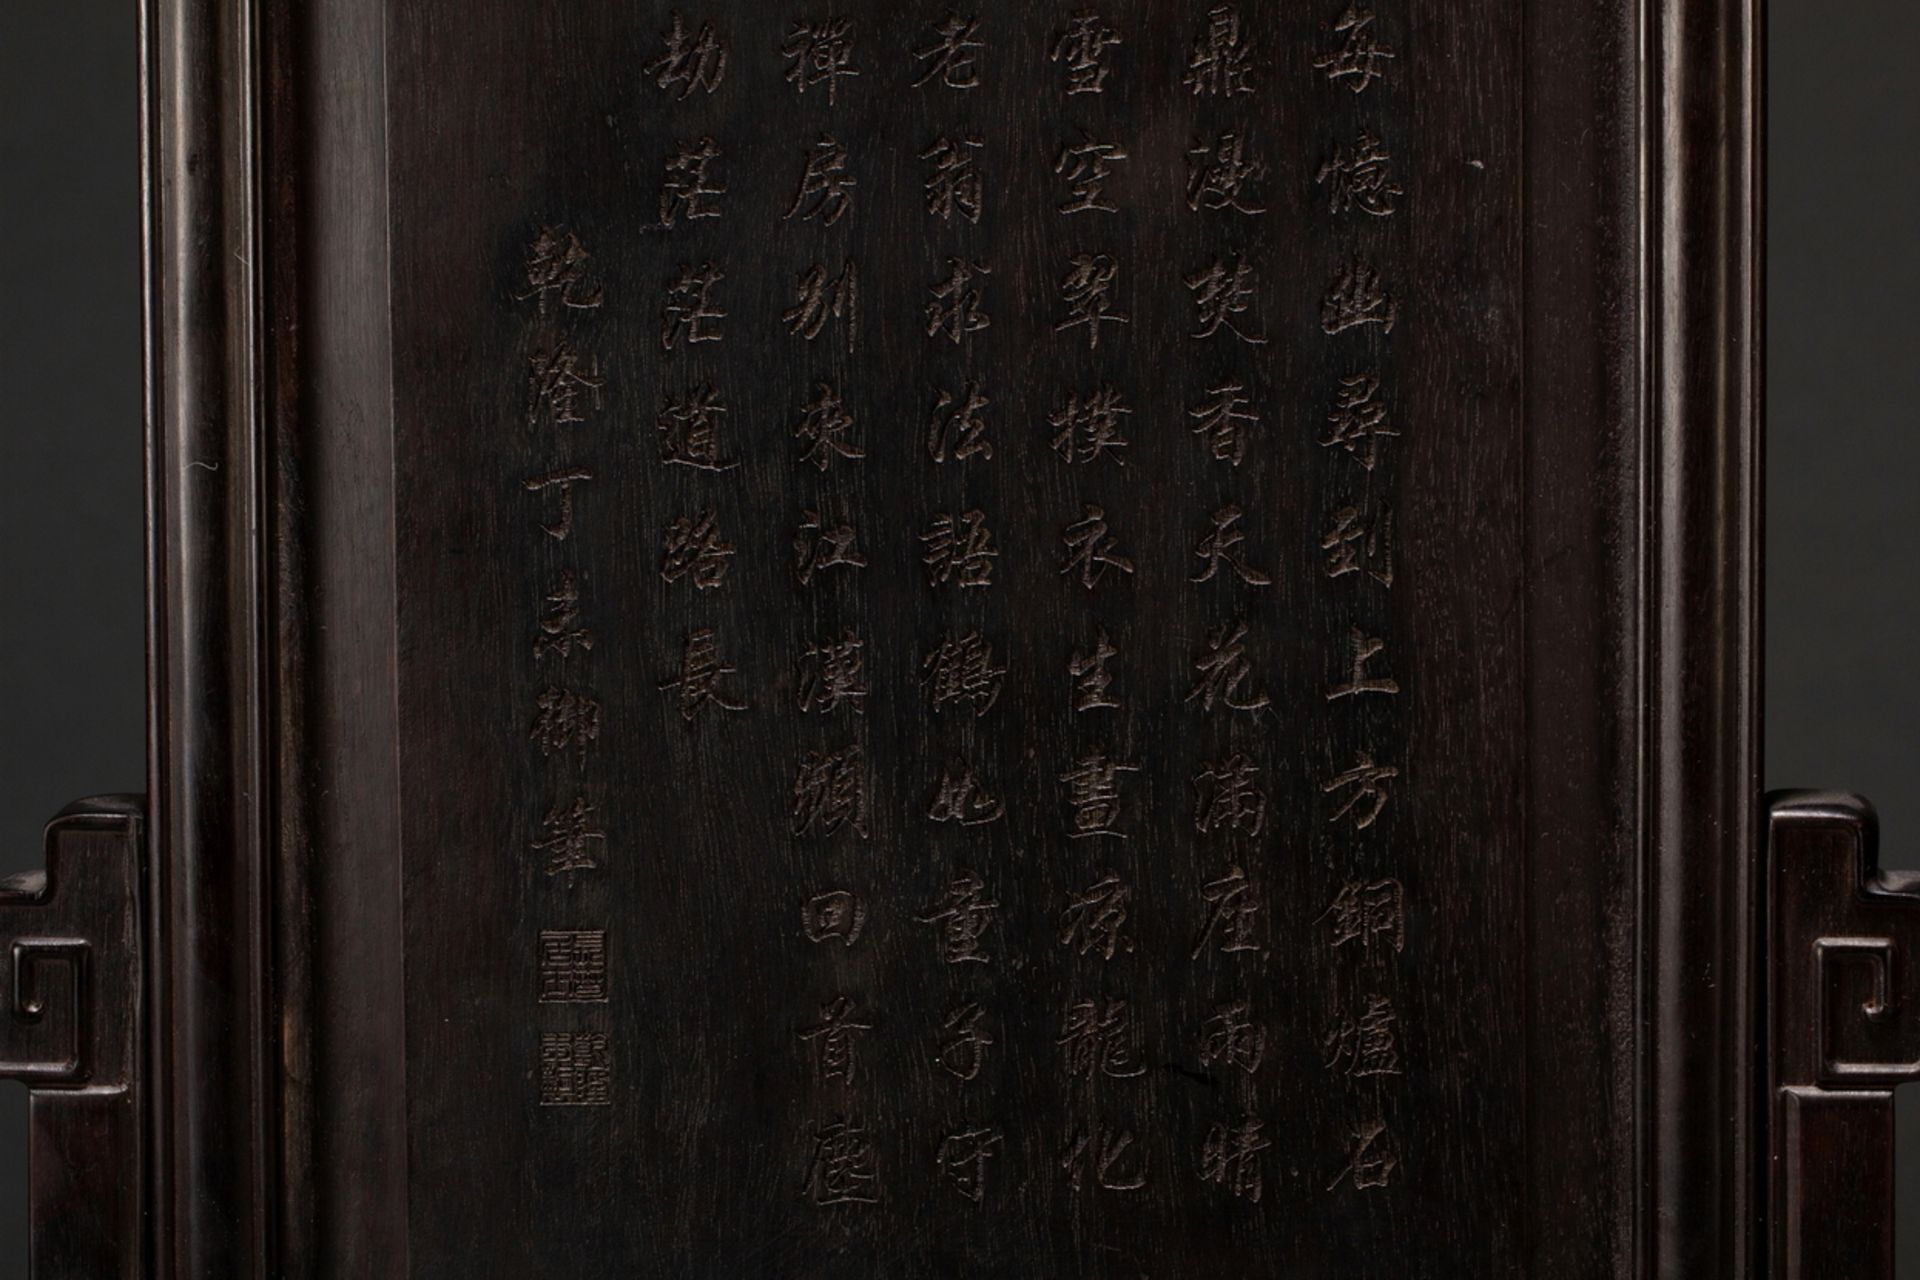 每憶幽尋到上方銅爐石
鼎漫焚香天花滿座雨晴
雪空翠撲衣生晝涼龍化
老翁求法語鶴如童子守
禪房別來江漢頻回首塵
劫茫茫道路長
乾隆丁亥御筆